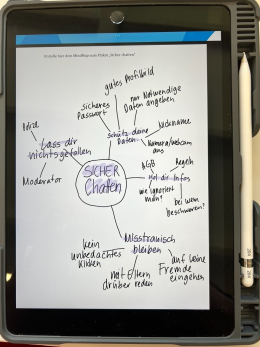 Erstelle hier eine MindMap zum Thema „Sicher chatten"
gutes Profilbild
sicheres
Passwort
nur Notwendige
Daten angeben
Nickname
schütz deine
Daten
Kamera/Webcam
aus
lass dir
nichts gefallen
Moderator
SICHER
Chatten
AGB
Hol dir Infos
wie ignoriert
man?
bei wem
beschweren?
Misstrauisch
bleiben
kein
unbedachtes
Klicken
mit Eltern
drüber reden
auf keine
Fremde
eingehen